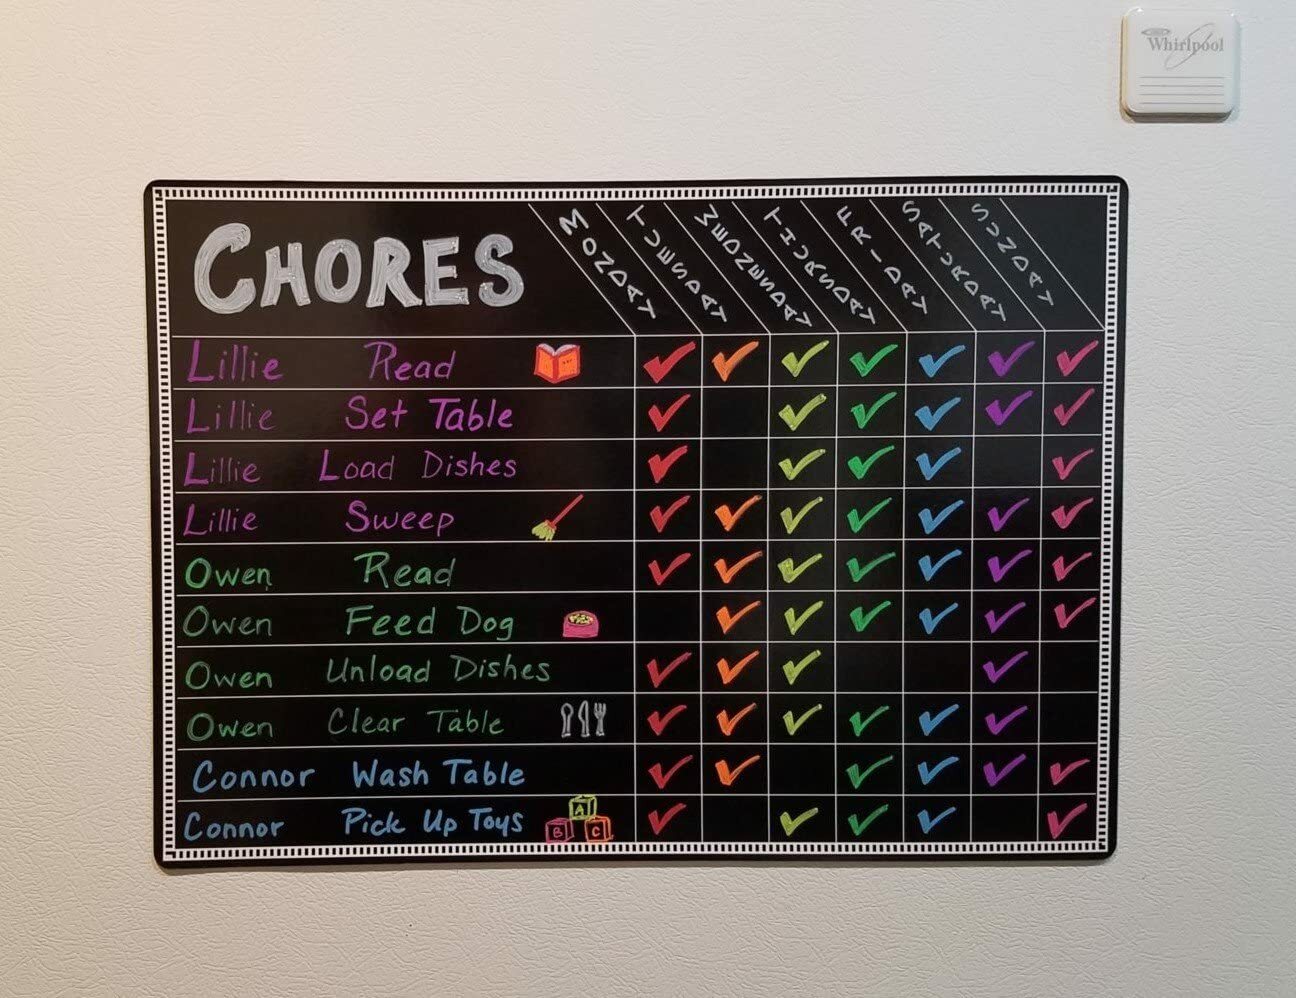 Whirlpool
CHORES
MONDAY
TUESDAY
WEDNESDAY
THURSDAY
FRIDAY
SATURDAY
SUNDAY
Lillie Read
Lillie Set Table
Lillie Load Dishes
Lillie Sweep
Owen Read
Owen Feed Dog
Owen Unload Dishes
Owen Clear Table
Connor Wash Table
Connor Pick Up Toys
A
B C